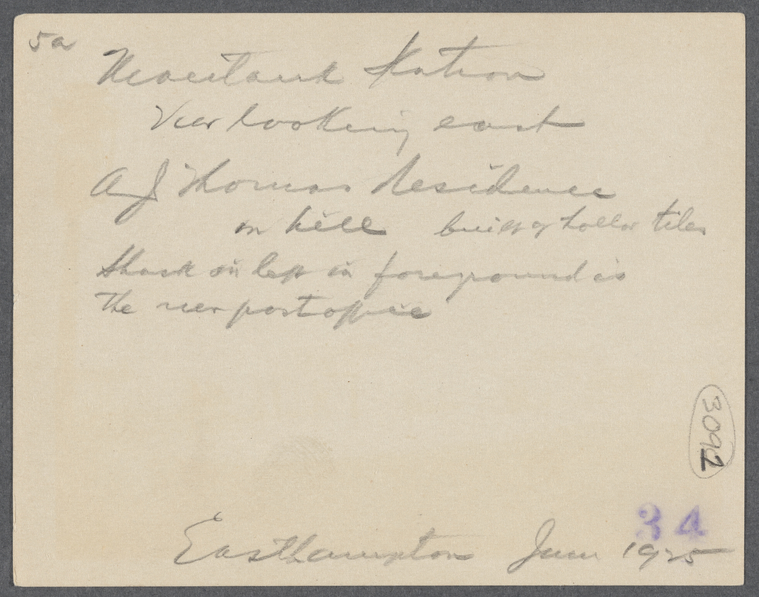 5a
Montauk Station
View looking east
A J Thomas Residence
on hill built of hollow tiles
Shack on left in foreground is
the new post office
3092
34
Easthampton June 1925